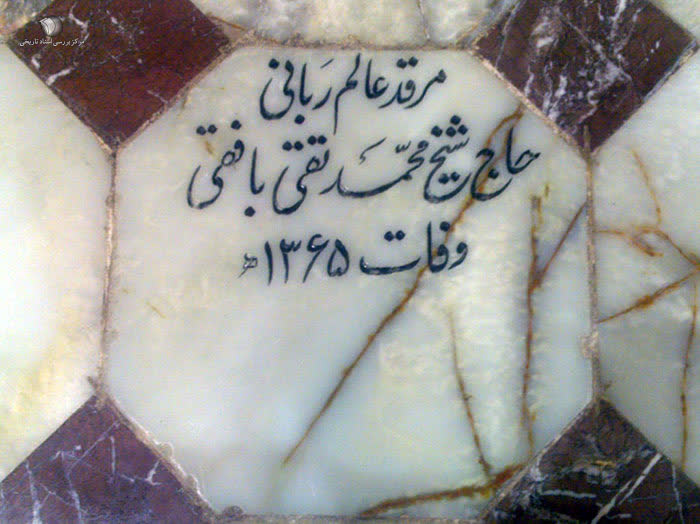 مرکز بررسی اسناد تاریخی
مرقد عالم ربانی
حاج شیخ محمّد تقی بافقی
وفات ۱۳۶۵ ھ